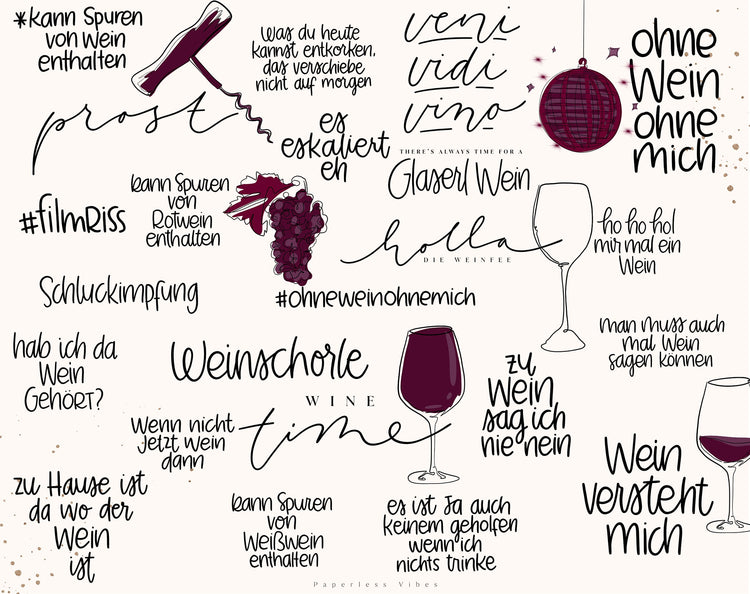 *kann Spuren
von Wein
enthalten
prost
Was du heute
kannst entkorken,
das verschiebe
nicht auf morgen
es
eskaliert
eh
veni
vidi
vino
ohne
Wein
ohne
mich
THERE'S ALWAYS TIME FOR A
Glaserl Wein
#filmRiss
kann Spuren
von
Rotwein
enthalten
holla
DIE WEINFEE
ho ho hol
mir mal ein
Wein
Schluckimpfung
#ohneweinohnemich
hab ich da
Wein
GEHÖRT?
Weinschorle
WINE
time
zu
Wein
sag ich
nie nein
man muss auch
mal Wein
sagen können
Wenn nicht
Jetzt Wein
dann
Wein
versteht
mich
zu Hause ist
da wo der
Wein
ist
kann Spuren
von
Weißwein
enthalten
es ist Ja auch
keinem geholfen
wenn ich
nichts trinke
Paperless Vibes